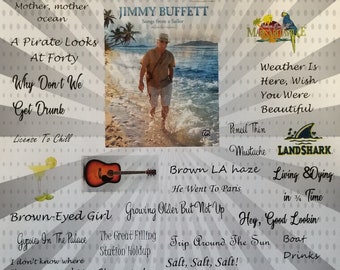 Mother, mother
ocean
JIMMY BUFFETT
Songs from a Sailor
A Pirate Looks
At Forty
Why Don't We
Get Drunk
License To Chill
Weather Is
Here, Wish
You Were
Beautiful
Pencil Thin
Mustache
LANDSHARK
Brown LA haze
He Went To Paris
Living &Dying
in ¾ Time
Growing Older But Not Up
Brown-Eyed Girl
Hey, Good Lookin'
Gypsies On The Palace
The Great Filling
Station Holdup
Trip Around The Sun
Boat
Drinks
I don't know where
Salt, Salt, Salt!